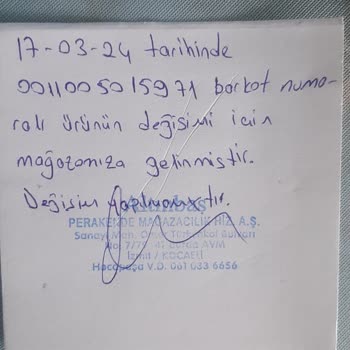 17-03-24 tarihinde
0011005015971 barkot numa-
ralı ürünün değişimi için
mağazamıza gelinmiştir.
Değişim yapılmamıştır.
PERAKENDE MAĞAZACILIK HİZ. A.Ş.
Sanayi Mah. Ömer Türkçakal Bulvarı
No: 7/75 41 Burda AVM
İzmit / KOCAELİ
V.D. 061 033 6656